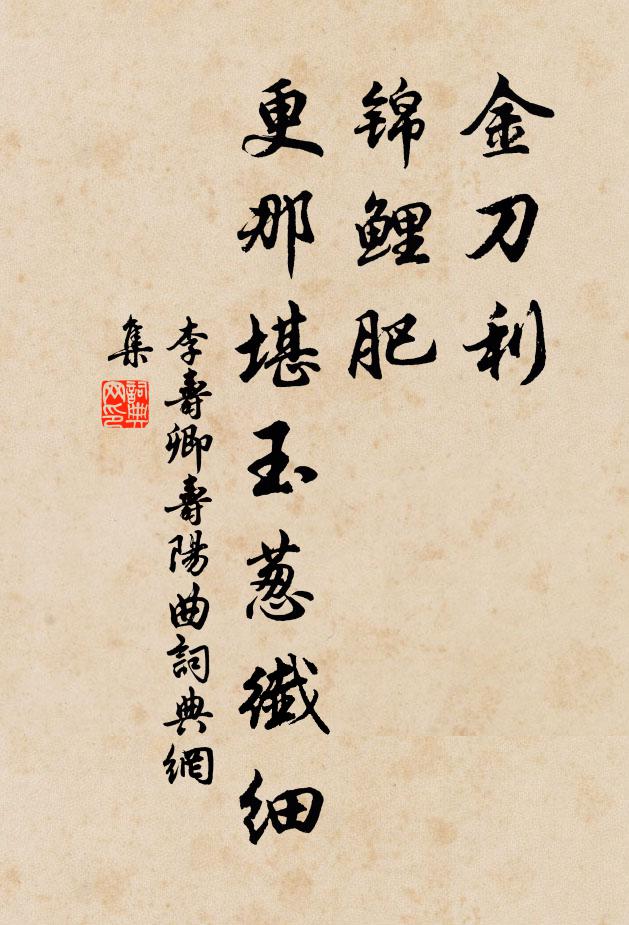 金刀利
锦鲤肥
更那堪玉葱纖细
李壽卿壽陽曲詞典網
集
詞典網印